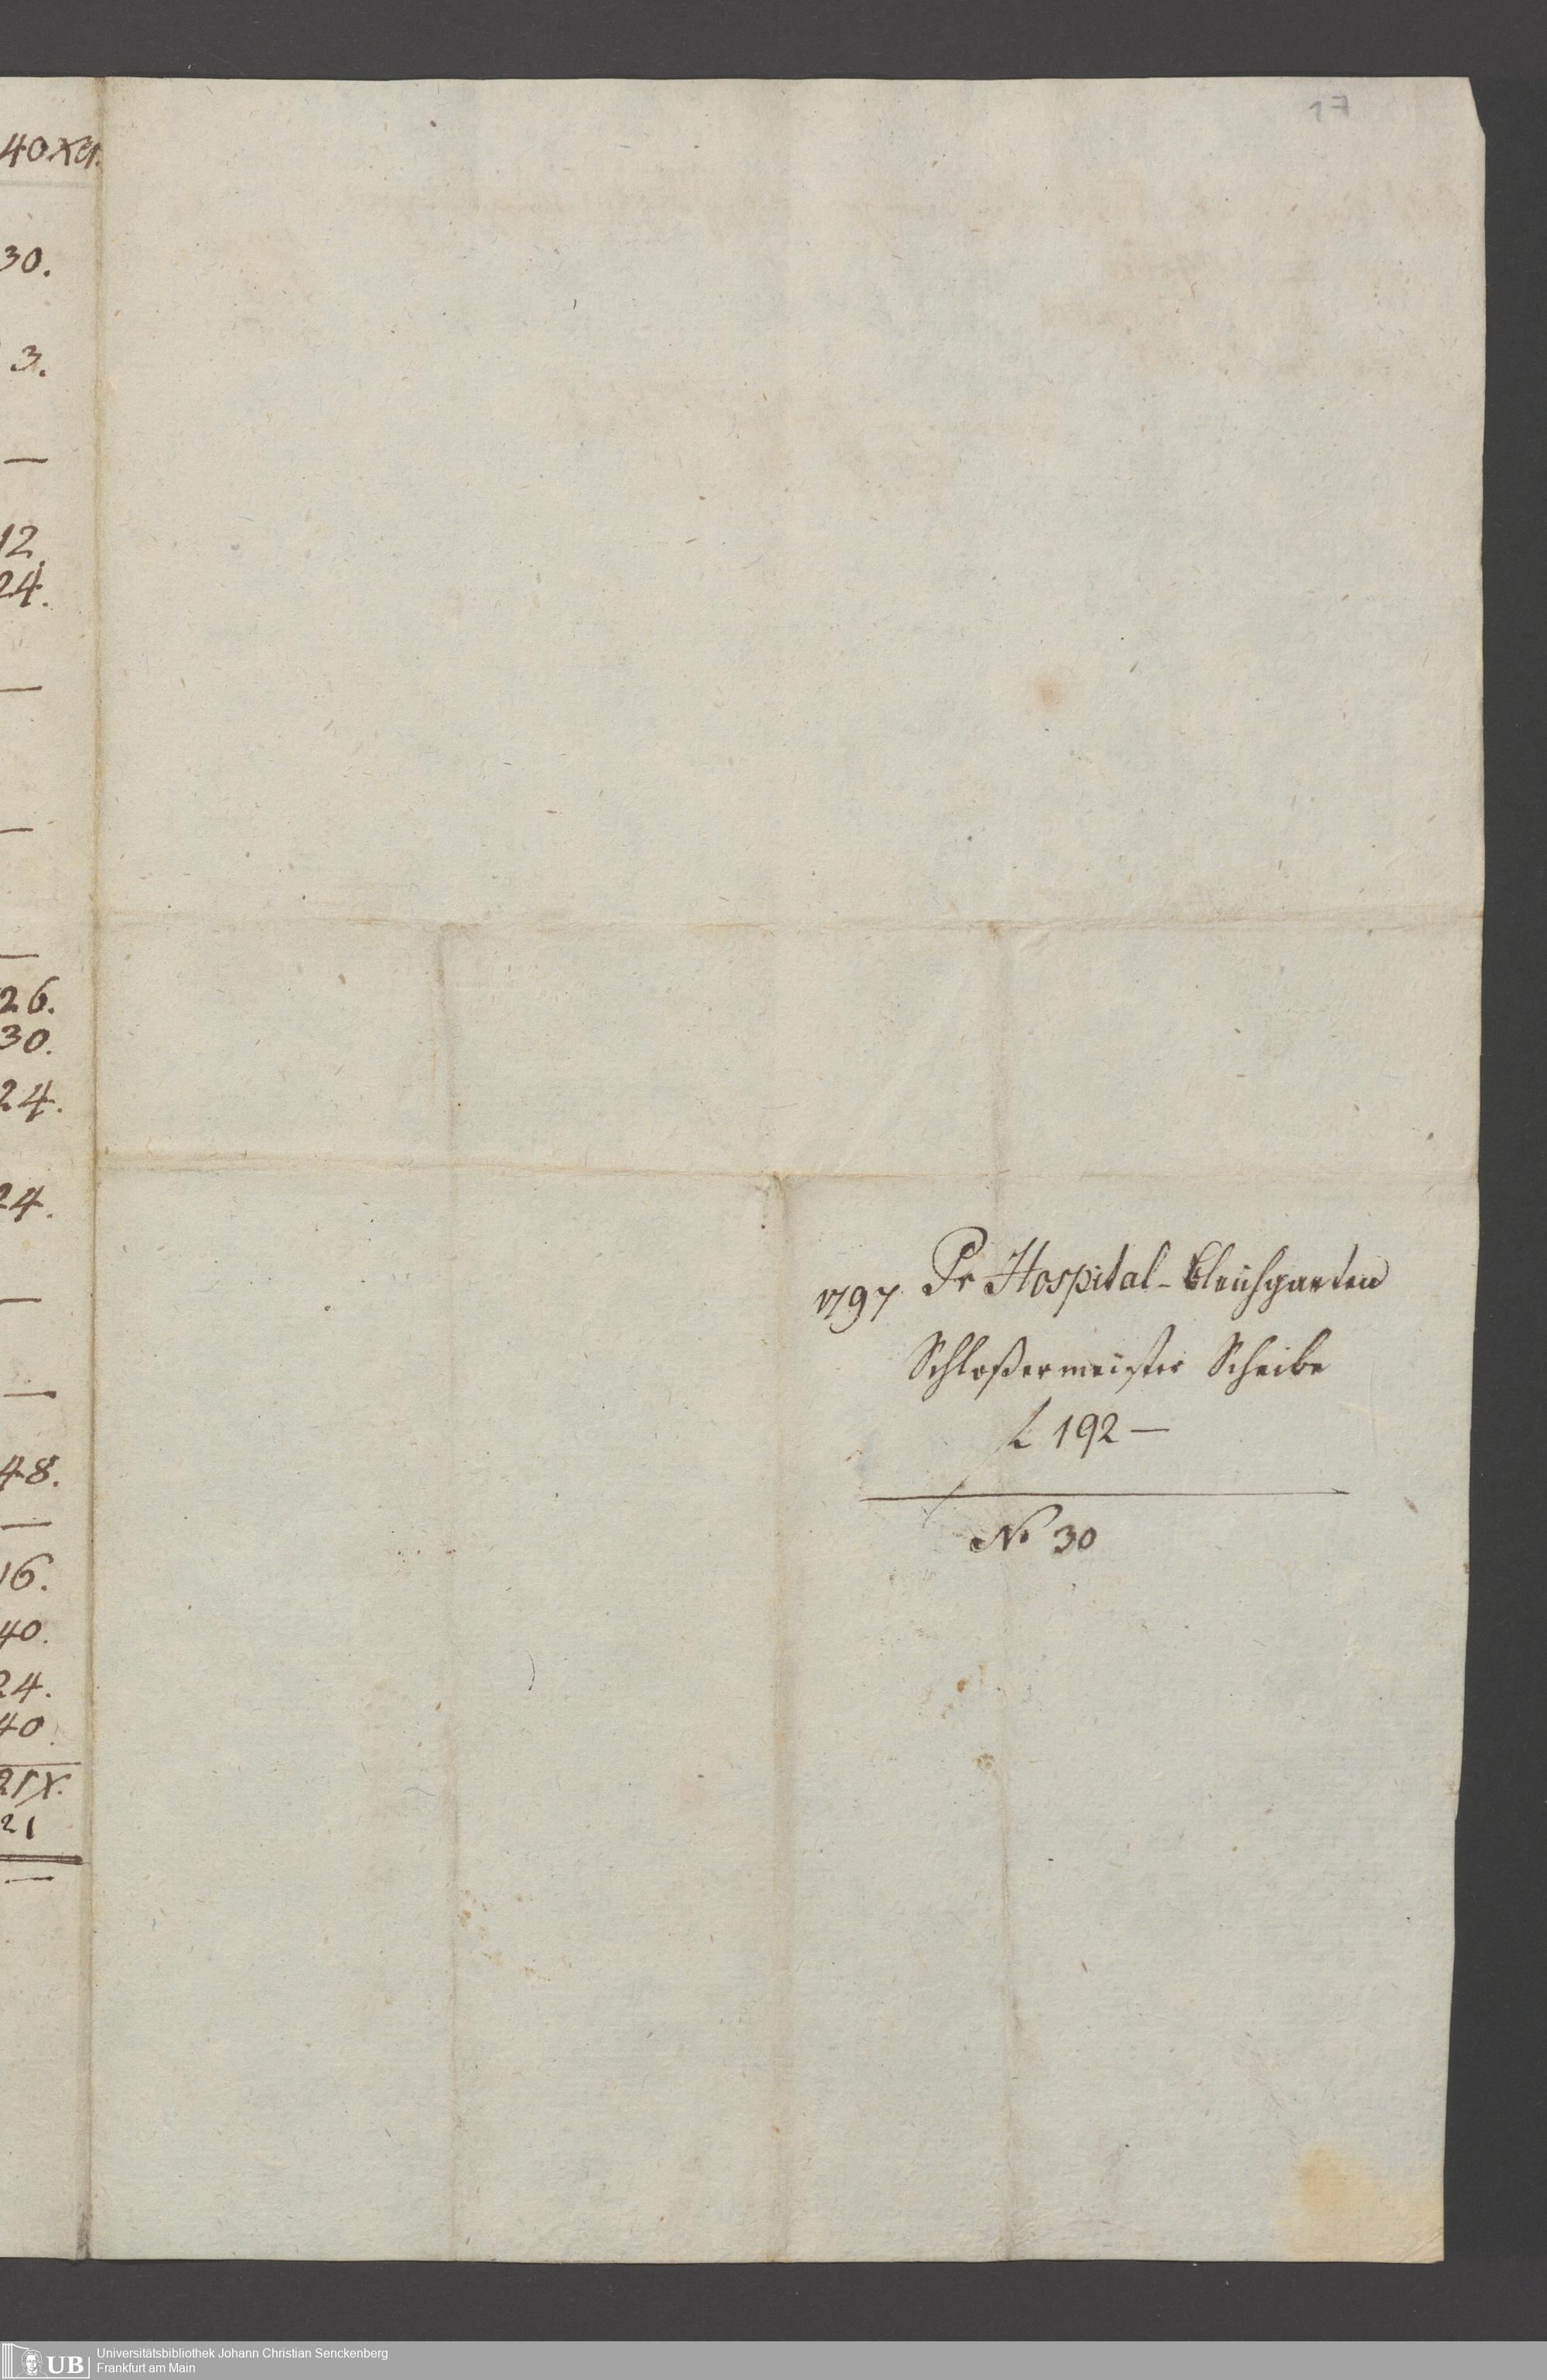 17
40 xr.
30.
3.
—
12.
24.
—
—
—
26.
30.
24.
24.
—
—
48.
—
16.
40.
24.
40.
21 x.
21
—
1797 Pr Hospital-Bleichgarten
Schloßermeister Scheibe
f 192 —
No 30
UB
Universitätsbibliothek Johann Christian Senckenberg
Frankfurt am Main